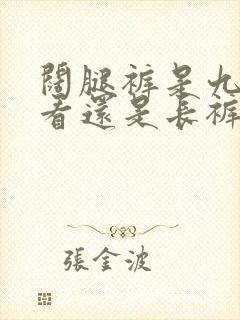 闊腿褲是九
看還是長褲
張金波